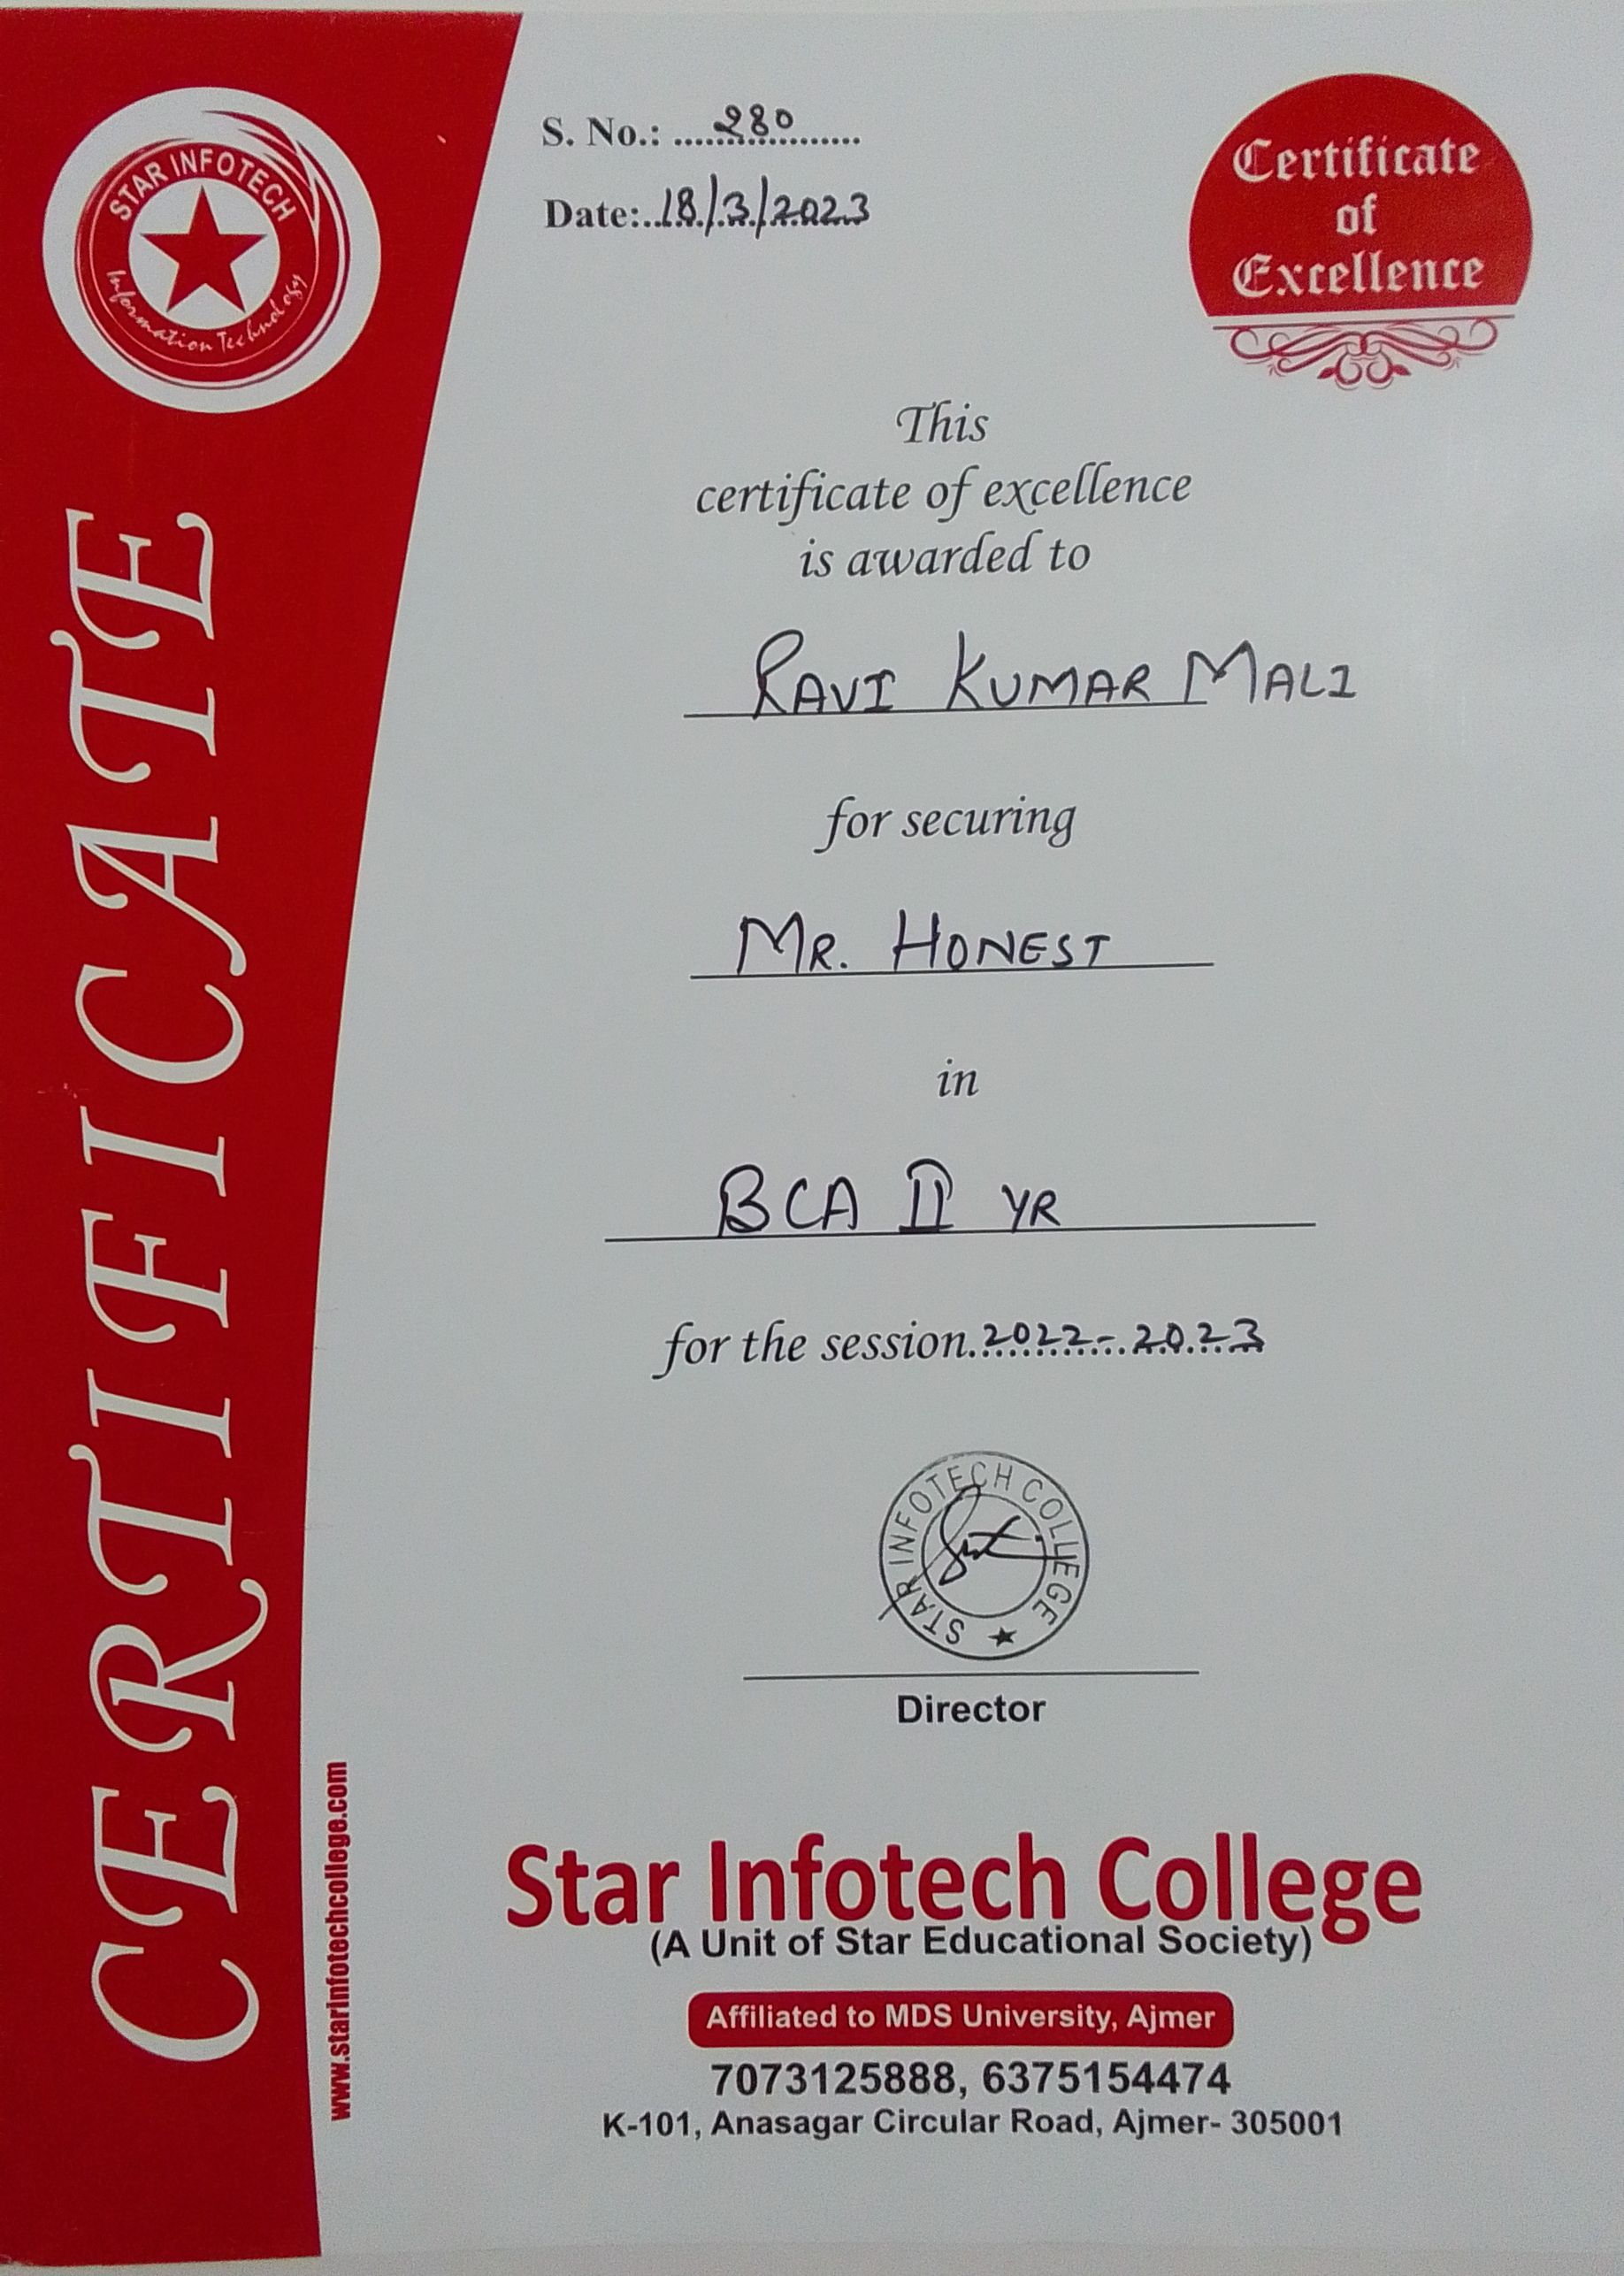 STAR INFOTECH
Information Technology
S. No.: ....280....
Date:..18/3/2023
Certificate
of
Excellence
CERTIFICATE
This
certificate of excellence
is awarded to
RAVI KUMAR MALI
for securing
MR. HONEST
in
BCA II YR
for the session.2022-2023
STAR INFOTECH COLLEGE
Director
www.starinfotechcollege.com
Star Infotech College
(A Unit of Star Educational Society)
Affiliated to MDS University, Ajmer
7073125888, 6375154474
K-101, Anasagar Circular Road, Ajmer- 305001